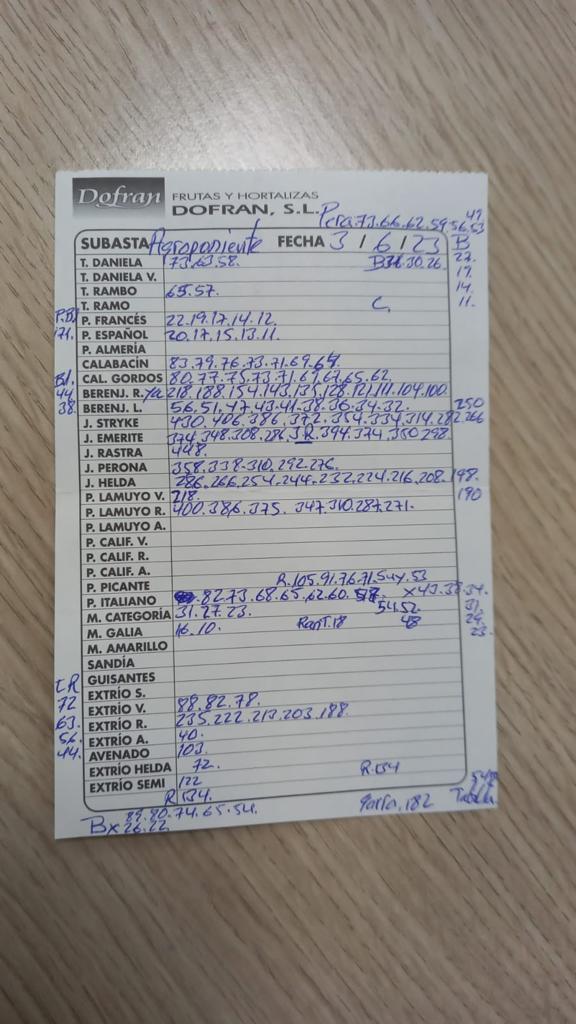 Dofran FRUTAS Y HORTALIZAS
DOFRAN, S.L. Pera 73.66.62.59.56.53
47
SUBASTA Agroponiente FECHA 3 / 6 / 23 B
T. DANIELA 73.63.58. 30.26 22.
T. DANIELA V. 17.
T. RAMBO 65.57. 14.
T. RAMO C, 11.
P.B. P. FRANCÉS 22.19.17.14.12.
171. P. ESPAÑOL 20.17.15.13.11.
P. ALMERÍA
CALABACÍN 83.79.76.73.71.69.64.
Bl. CAL. GORDOS 80.77.75.73.71.67.65.62.
44 BERENJ. R. 218.188.154.143.135.128.121.111.104.100.
38. BERENJ. L. 56.51.47.43.41.38.36.34.32. 250
J. STRYKE 430.406.386.372.354.334.314.282.266
J. EMERITE 374.348.308.286. R.394.374.350.298.
J. RASTRA 448.
J. PERONA 358.338.310.292.276.
J. HELDA 286.266.254.244.232.224.216.208.198.
P. LAMUYO V. 218. 190
P. LAMUYO R. 400.386.375. 347.310.287.271.
P. LAMUYO A.
P. CALIF. V.
P. CALIF. R.
P. CALIF. A.
P. PICANTE R.105.91.76.71. 53
P. ITALIANO 82.73.68.65.62.60. x43. 34.
M. CATEGORÍA 31.27.23. 54.52. 31.
M. GALIA 16.10. 18 48 29.
M. AMARILLO 23.
SANDÍA
GUISANTES
EXTRÍO S.
72 EXTRÍO V. 88.82.78.
63. EXTRÍO R. 235.222.213.203.188.
56. EXTRÍO A. 40.
44. AVENADO 103.
EXTRÍO HELDA 72. R.134
EXTRÍO SEMI 122
R 134. 182
89.80.74.65.54.
Bx 26.22